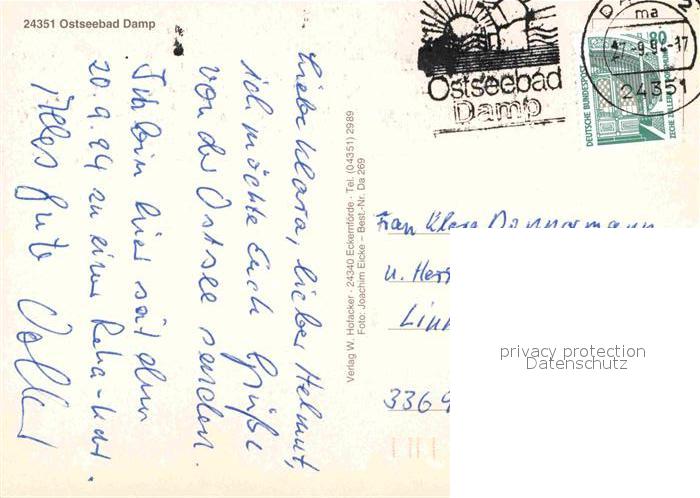 24351 Ostseebad Damp
Liebe Klara, lieber Helmut,
ich möchte Euch Grüße
von der Ostsee senden.
Ich bin hier seit dem
20.9.94 zu einer Reha-Kur.
Alles Gute Volker
Verlag W. Hofacker · 24340 Eckernförde · Tel. (04351) 2989
Foto: Joachim Eicke – Best.-Nr. Da 269
Ostseebad
Damp
ma
-9.94-17
24351
DEUTSCHE BUNDESPOST
80
ZECHE ZOLLERN DORTMUND
Frau Klara
u. Herr
Lin
3369
privacy protection
Datenschutz